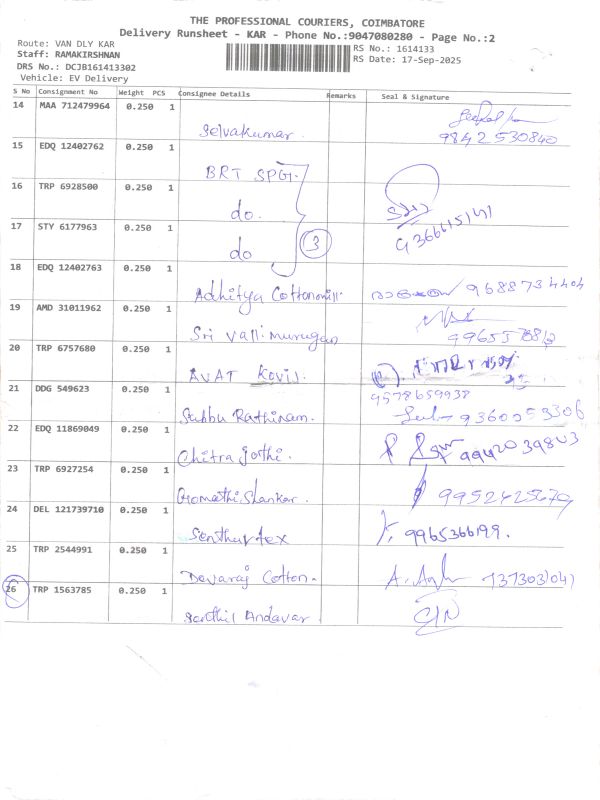 THE PROFESSIONAL COURIERS, COIMBATORE
Delivery Runsheet - KAR - Phone No.:9047080280 - Page No.:2
Route: VAN DLY KAR
Staff: RAMAKIRSHNAN
DRS No.: DCJB161413302
Vehicle: EV Delivery
RS No.: 1614133
RS Date: 17-Sep-2025
S No Consignment No Weight PCS Consignee Details Remarks Seal & Signature
14 MAA 712479964 0.250 1 Selvakumar 9842530840
15 EDQ 12402762 0.250 1 BRT SPG.
16 TRP 6928500 0.250 1 do.
17 STY 6177963 0.250 1 do 3
18 EDQ 12402763 0.250 1 Adhitya Cottonmill. 9688734404
19 AMD 31011962 0.250 1 Sri Vallimurugan
20 TRP 6757680 0.250 1 AVAT Kovil.
21 DDG 549623 0.250 1 Subbu Rathinam. 9578659938
22 EDQ 11869049 0.250 1 Chitra Jothi.
23 TRP 6927254 0.250 1 Gomathi Shankar.
24 DEL 121739710 0.250 1 Senthur tex 9965366199.
25 TRP 2544991 0.250 1 Devaraj Cotton. 
26 TRP 1563785 0.250 1 Senthil Andavar